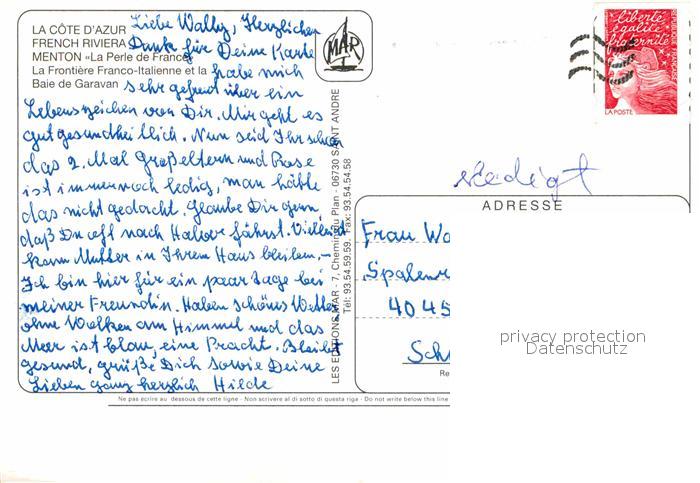 LA CÔTE D'AZUR
FRENCH RIVIERA
MENTON «La Perle de France»
La Frontière Franco-Italienne et la
Baie de Garavan
Liebe Wally, Herzlichen
Dank für Deine Karte
habe mich
sehr gefreut über ein
Lebenszeichen von Dir. Mir geht es
gut gesundheitlich. Nun seid Ihr schon
das 2. Mal Großeltern und Rose
ist immernoch ledig, man hätte
das nicht gedacht. Glaube Dir gern
daß Du oft nach fährst. Vielleicht
kann Mutter in Ihrem Haus bleiben.-
Ich bin hier für ein paar Tage bei
meiner Freundin. Haben schönes Wetter
ohne Wolken am Himmel und das
Meer ist blau, eine Pracht. Bleibt
gesund, grüße Dich sowie Deine
Lieben ganz herzlich Hilde
MAR
LES EDITIONS MAR - 7, Chemin du Plan - 06730 SAINT ANDRE
Tél: 93.54.59.59. Fax: 93.54.54.58
liberté
égalité
fraternité
RÉPUBLIQUE FRANÇAISE
LA POSTE
erledigt
ADRESSE
Frau Wa
Spalenr
4045
Sch
Re
privacy protection
Datenschutz
Ne pas écrire au dessous de cette ligne - Non scrivere al di sotto di questa riga - Do not write below this line